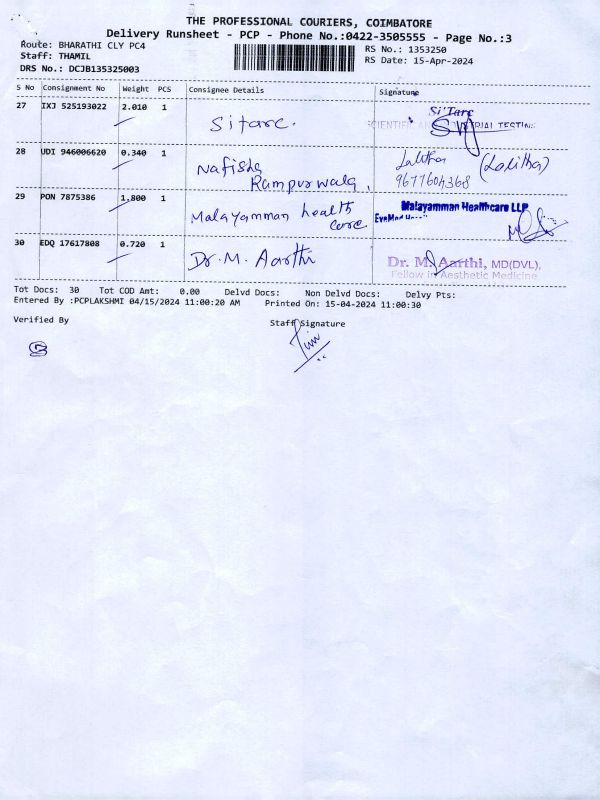 THE PROFESSIONAL COURIERS, COIMBATORE
Delivery Runsheet - PCP - Phone No.:0422-3505555 - Page No.:3
Route: BHARATHI CLY PC4
RS No.: 1353250
Staff: THAMIL
RS Date: 15-Apr-2024
DRS No.: DCJB135325003
S No Consignment No Weight PCS Consignee Details Signature
27 IXJ 525193022 2.010 1 Sitarc.
Si'Tarc
SCIENTIFIC AND INDUSTRIAL TESTING
28 UDI 946006620 0.340 1 Nafisha
Rampurwala,
Lalitha (Lalitha)
9677604368
29 PON 7875386 1.800 1 Malayamman health
care
Malayamman Healthcare LLP
30 EDQ 17617808 0.720 1 Dr. M. Aarthi
Dr. M. Aarthi, MD(DVL),
Fellow in Aesthetic Medicine
Tot Docs: 30 Tot COD Amt: 0.00 Delvd Docs: Non Delvd Docs: Delvy Pts:
Entered By :PCPLAKSHMI 04/15/2024 11:00:20 AM Printed On: 15-04-2024 11:00:30
Verified By
Staff Signature